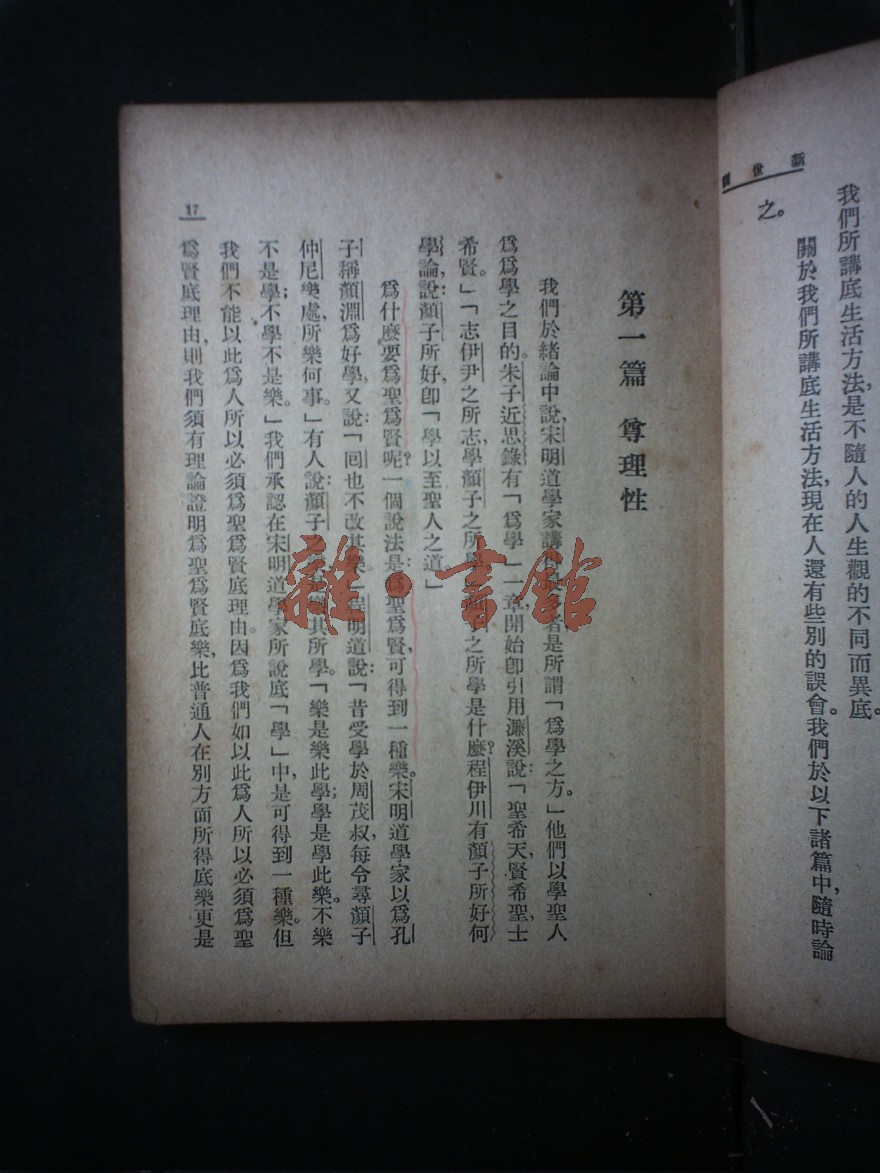 新世
我們所講底生活方法,是不隨人的人生觀的不同而異底。
關於我們所講底生活方法,現在人還有些別的誤會。我們於以下諸篇中,隨時論
之。
第一篇 尊理性
我們於緒論中說,宋明道學家講得最多者是所謂「爲學之方。」他們以學聖人
爲爲學之目的。朱子近思錄有「爲學」一章,開始卽引用濂溪說:「聖希天,賢希聖,士
希賢。」「志伊尹之所志,學顏子之所學。」顏子之所學是什麼?程伊川有顏子所好何
學論,說顏子所好,卽「學以至聖人之道。」
爲什麼要爲聖爲賢呢?一個說法是:爲聖爲賢,可得到一種樂。宋明道學家以爲孔
子稱顏淵爲好學,又說:「回也不改其樂。」程明道說:「昔受學於周茂叔,每令尋顏子
仲尼樂處,所樂何事。」有人說:顏子之樂,樂其所學。「樂是樂此學;學是學此樂。不樂
不是學;不學不是樂。」我們承認在宋明道學家所說底「學」中,是可得到一種樂。但
我們不能以此爲人所以必須爲聖爲賢底理由。因爲我們如以此爲人所以必須爲聖
爲賢底理由,則我們須有理論證明爲聖爲賢底樂,比普通人在別方面所得底樂更是
17
雜·書館